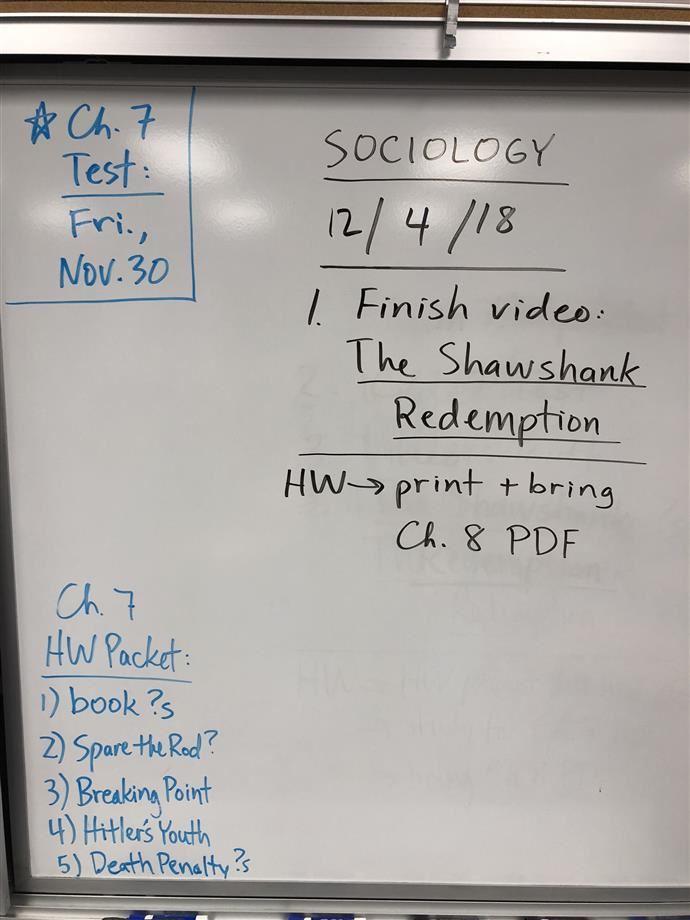 ☆ Ch. 7
Test:
Fri.,
Nov. 30
SOCIOLOGY
12/4/18
1. Finish video:
The Shawshank
Redemption
HW → print + bring
Ch. 8 PDF
Ch. 7
HW Packet:
1) book ?s
2) Spare the Rod?
3) Breaking Point
4) Hitler's Youth
5) Death Penalty ?s